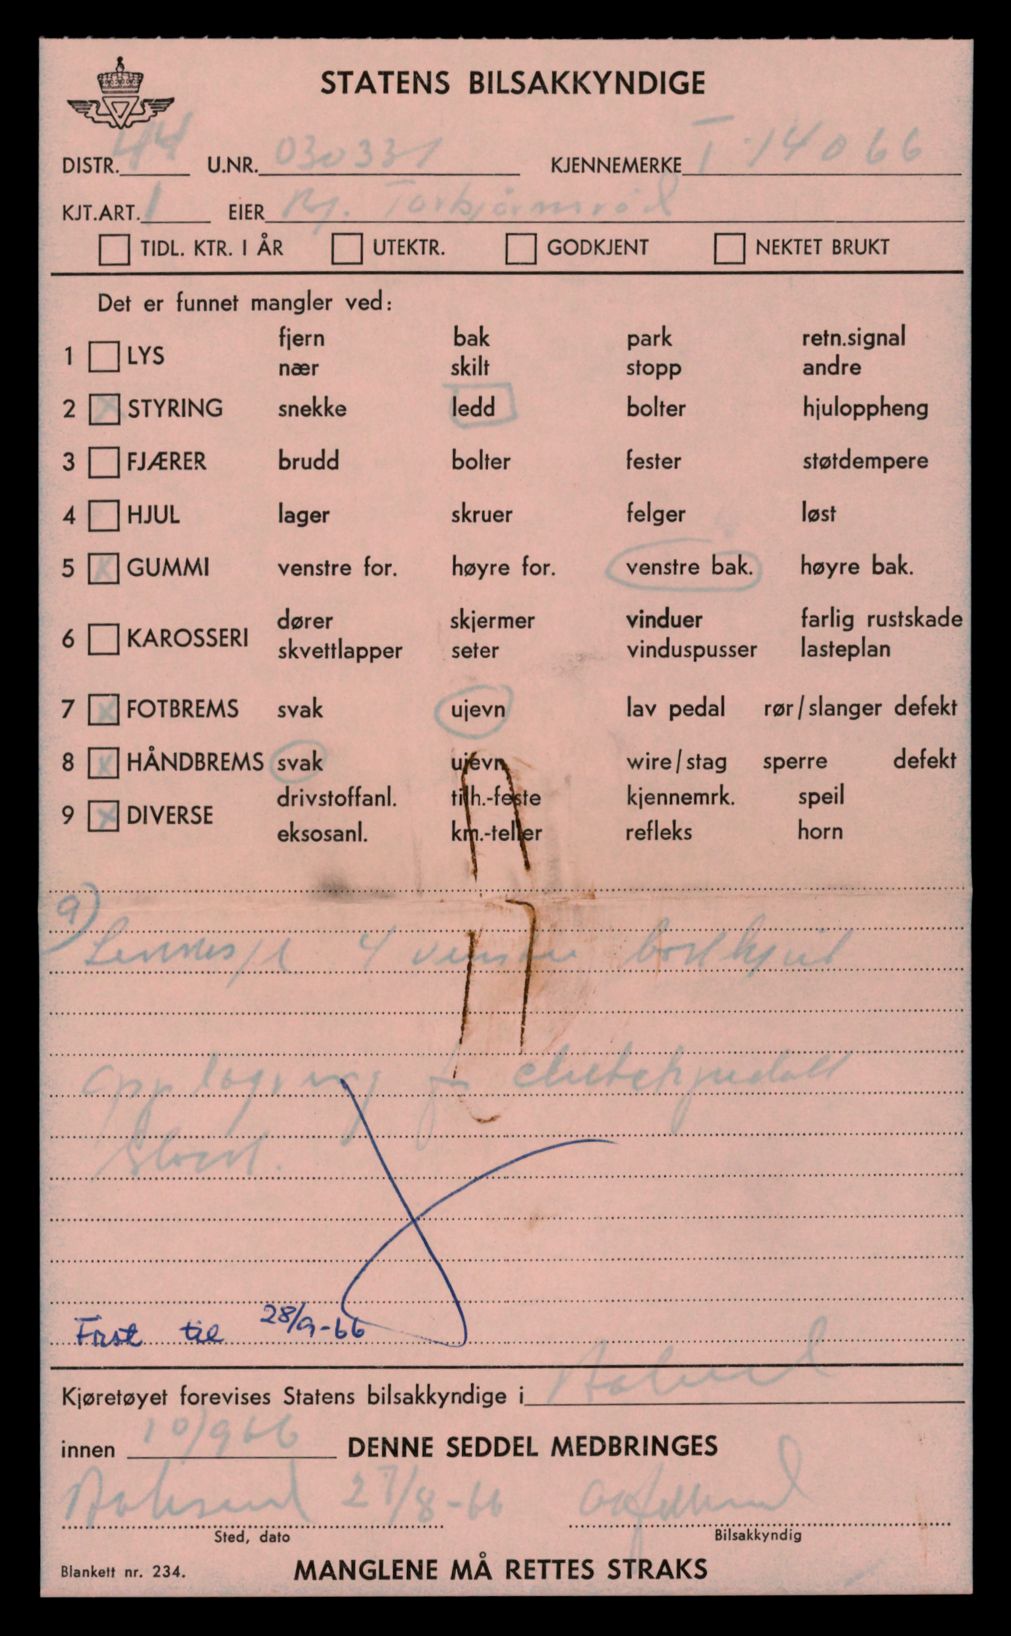 STATENS BILSAKKYNDIGE
DISTR. 44 U.NR. 030331 KJENNEMERKE T-14066
KJT.ART. 1 EIER Torbjørnsrød
TIDL. KTR. I ÅR UTEKTR. GODKJENT NEKTET BRUKT
Det er funnet mangler ved:
1 LYS fjern bak park retn.signal
nær skilt stopp andre
2 X STYRING snekke ledd bolter hjuloppheng
3 FJÆRER brudd bolter fester støtdempere
4 HJUL lager skruer felger løst
5 X GUMMI venstre for. høyre for. venstre bak. høyre bak.
6 KAROSSERI dører skjermer vinduer farlig rustskade
skvettlapper seter vinduspusser lasteplan
7 X FOTBREMS svak ujevn lav pedal rør/slanger defekt
8 X HÅNDBREMS svak ujevn wire/stag sperre defekt
9 X DIVERSE drivstoffanl. tilh.-feste kjennemrk. speil
eksosanl. km.-teller refleks horn
9)
4 venstre
Frist til 28/9-66
Kjøretøyet forevises Statens bilsakkyndige i
innen 10/9 66 DENNE SEDDEL MEDBRINGES
27/8-66
Sted, dato Bilsakkyndig
Blankett nr. 234. MANGLENE MÅ RETTES STRAKS